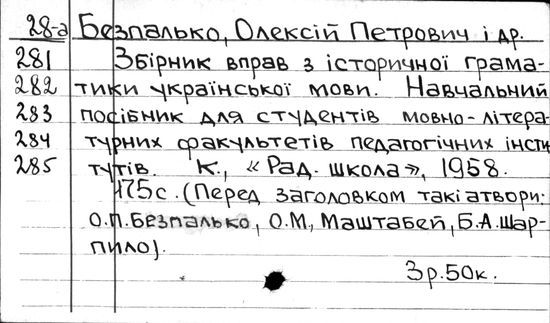 28-а Безпалько, Олексій Петрович і др.
281 Збірник вправ з історичної грама-
282 тики української мови. Навчальний
283 посібник для студентів мовно-літера-
284 турних факультетів педагогічних інсти
285 тутів. К., «Рад. школа», 1958.
175с. (Перед заголовком такі автори:
О.П.Безпалько, О.М, Маштабей, Б.А.Шар-
пило).
3р.50к.